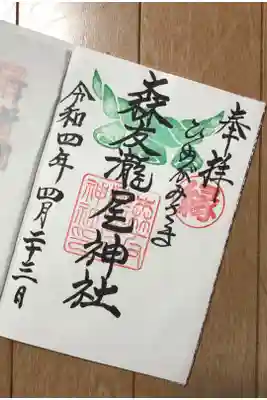 奉拝
ひめがみさま
縁
森友瀧尾神社
令和四年 四月二十三日